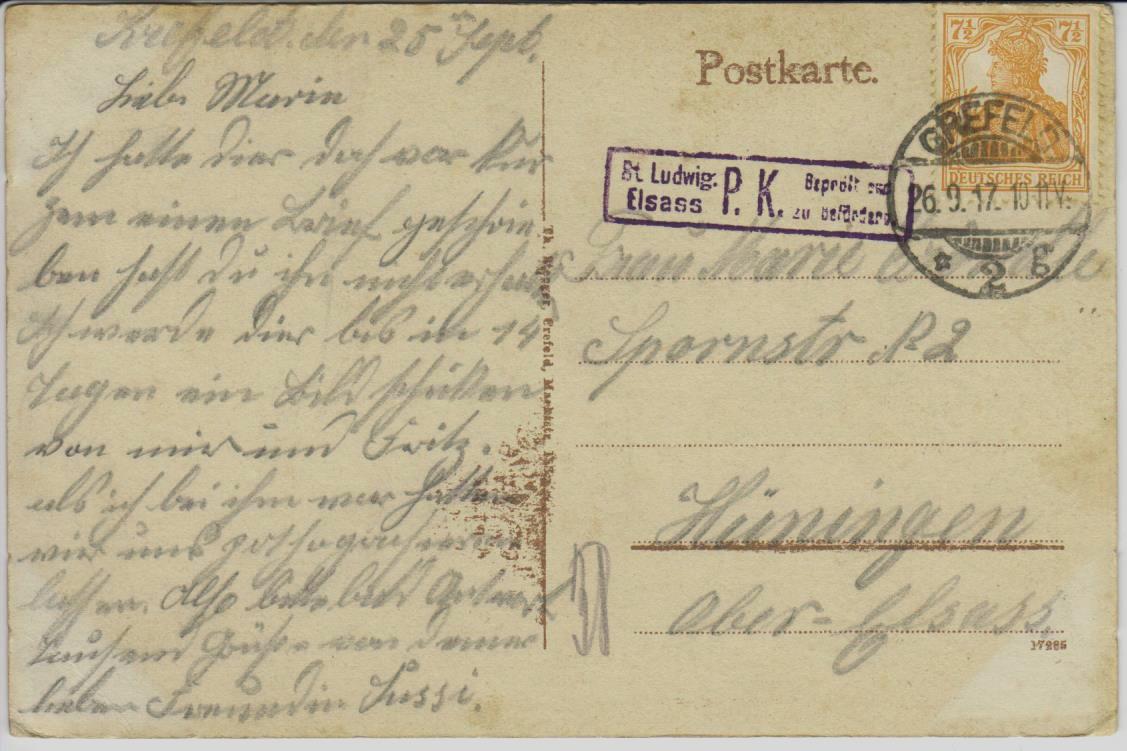 Krefeld. den 25 Sept.
Liebe Marie
Ich hatte dier doch vor kur
zem einen Brief geschrie
ben hast du ihn nicht erhal
Ich werde dier bis in 14
Tagen ein Bild schicken
von mir und Fritz.
als ich bei ihm war hatten
wir uns
lassen. Also bitte bald Antwort
Tausend Grüße von deiner
lieben Freundin Sussi.
Th. Crefeld,
Postkarte.
7½ 7½
DEUTSCHES REICH
CREFELD
26.9.17. 10-11V.
* 2 g
St. Ludwig. Elsass P. K. Geprüft und zu befördern
Frau Marie
Spornstr N2
Hüningen
Ober-Elsass.
17285